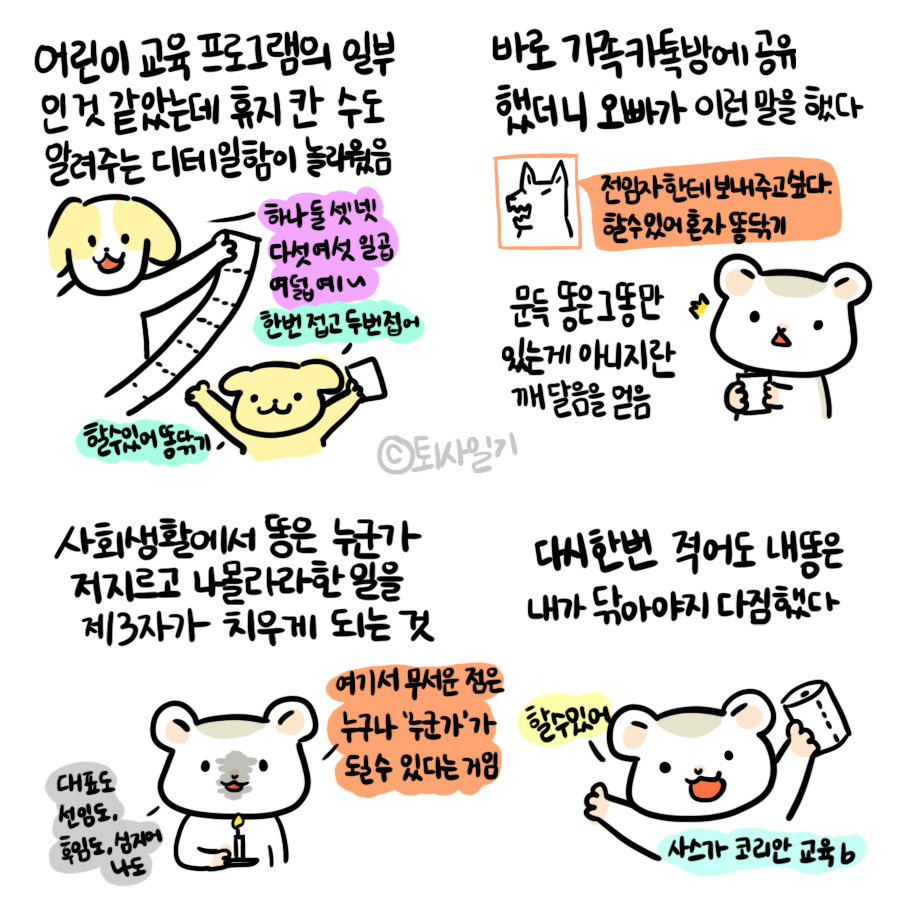 어린이 교육 프로그램의 일부
인 것 같았는데 휴지 칸 수도
알려주는 디테일함이 놀라웠음
하나 둘 셋 넷
다섯 여섯 일곱
여덟 예~
한번 접고 두번 접어
할 수 있어 똥닦기
바로 가족카톡방에 공유
했더니 오빠가 이런 말을 했다
전임자한테 보내주고싶다.
할 수 있어 혼자 똥닦기
문득 똥은 그 똥만
있는게 아니지란
깨달음을 얻음
©퇴사일기
사회생활에서 똥은 누군가
저지르고 나몰라라한 일을
제3자가 치우게 되는 것
여기서 무서운 점은
누구나 '누군가'가
될 수 있다는거임
대표도
선임도,
후임도, 심지어
나도
다시한번 적어도 내똥은
내가 닦아야지 다짐했다
할수있어
사스가 코리안 교육b